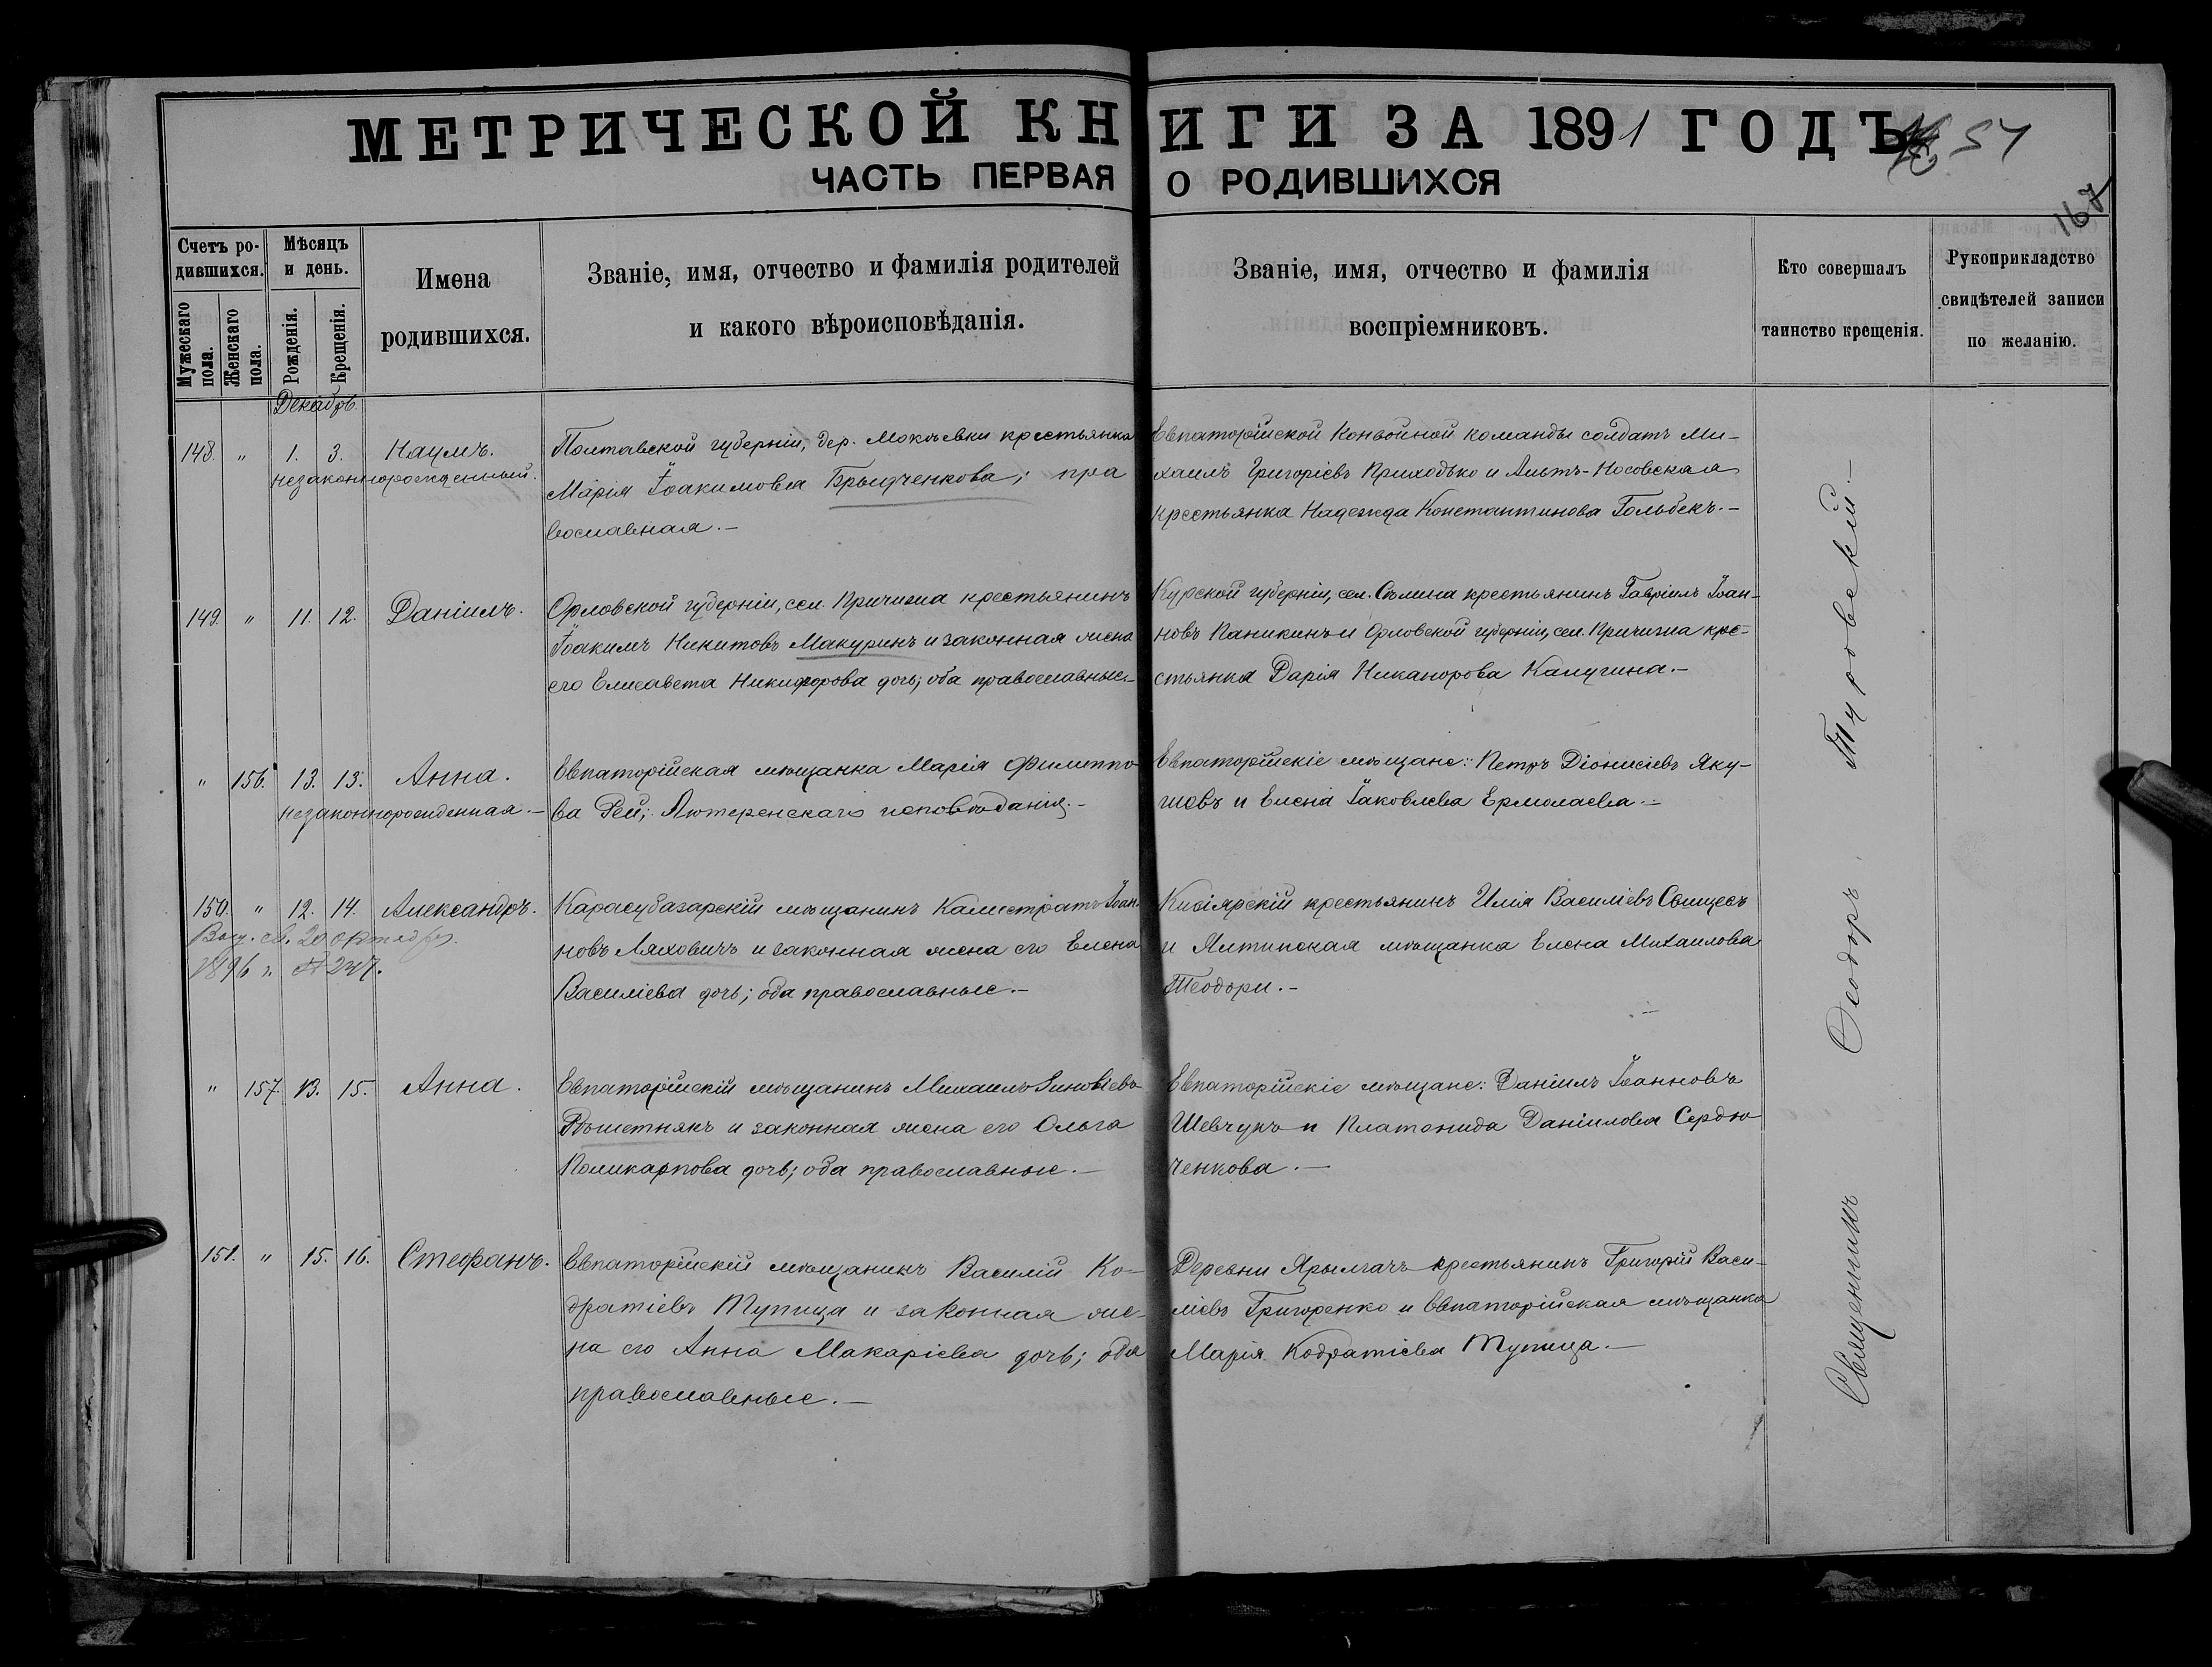 МЕТРИЧЕСКОЙ КНИГИ ЗА 1891 ГОДЪ 54
ЧАСТЬ ПЕРВАЯ О РОДИВШИХСЯ
167
Счетъ родившихся.
Мужескаго пола.
Женскаго пола.
Мѣсяцъ и день.
Рожденія.
Крещенія.
Имена родившихся.
Званіе, имя, отчество и фамилія родителей
и какого вѣроисповѣданія.
Званіе, имя, отчество и фамилія
воспріемниковъ.
Кто совершалъ
таинство крещенія.
Рукоприкладство
свидѣтелей записи
по желанію.
Декабрь
148. " 1. 3. Наумъ.
незаконнорожденный.
Полтавской губерніи, дер. Мокіевки крестьянка
Марія Іоакимовна Брыдченкова; пра
вославная.–
Евпаторійской Конвойной команды солдатъ Ми-
хаилъ Григоріевъ Приходько и Альтъ-Носовская
крестьянка Надежда Константинова Гольбекъ.–
149. " 11. 12. Даніилъ.
Орловской губерніи, сел. Причизна крестьянинъ
Іоакимъ Никитовъ Макуринъ и законная жена
его Елисавета Никифорова дочь; оба православные.–
Курской губерніи, сел. Сѣлина крестьянинъ Гавріилъ Іоан-
новъ Паникинъ и Орловской губерніи, сел. Причизна кре-
стьянка Дарія Никанорова Капугина.–
" 156. 13. 13. Анна.
незаконнорожденная.–
Евпаторійская мѣщанка Марія Филиппо-
ва Рей; Лютеренскаго исповѣданія.–
Евпаторійскіе мѣщане: Петръ Діонисіевъ Яку-
шевъ и Елена Іаковлева Ермолаева.–
150. " 12. 14. Александръ.
Выд. св. 20 октября
1896 г. № 237.
Карасубазарскій мѣщанинъ Калистратъ Іоан-
новъ Ляховичъ и законная жена его Елена
Василіева дочь; оба православные.–
Кизіярскій крестьянинъ Илія Василіевъ Свищевъ
и Ялтинская мѣщанка Елена Михаилова
Теодори.–
" 157. 13. 15. Анна.
Евпаторійскій мѣщанинъ Михаилъ Зиновіевъ
Рѣшетнякъ и законная жена его Ольга
Поликарпова дочь; оба православные.–
Евпаторійскіе мѣщане: Даніилъ Іоанновъ
Шевчукъ и Платонида Даніилова Сердю-
ченкова.–
151. " 15. 16. Стефанъ.
Евпаторійскій мѣщанинъ Василій Ко-
дратіевъ Тупица и законная же-
на его Анна Макаріева дочь; оба
православные.–
Деревни Ярылгачъ крестьянинъ Григорій Васи-
ліевъ Григоренко и Евпаторійская мѣщанка
Марія Кодратіева Тупица.–
Священникъ Ѳеодоръ Туровскій–